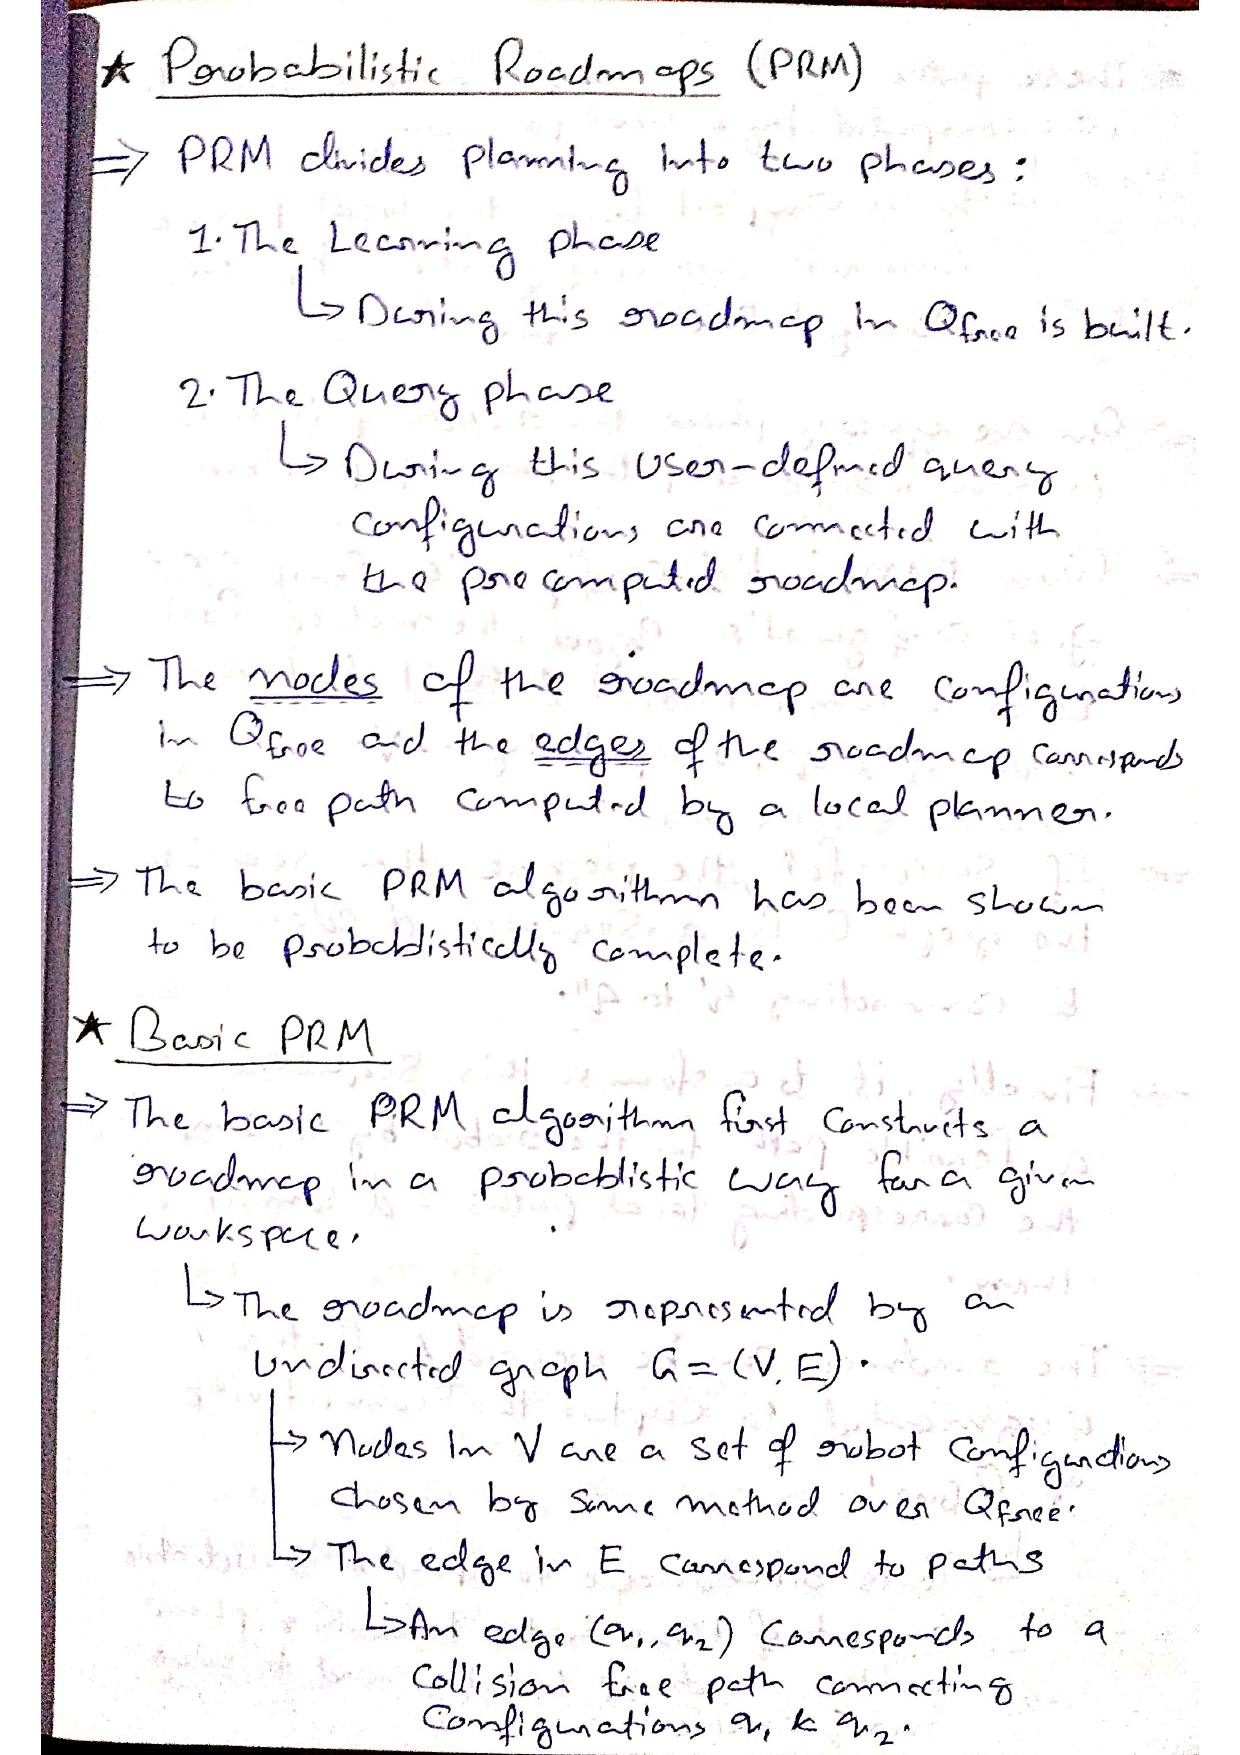 ★ Probabilistic Roadmaps (PRM)
⇒ PRM divides planning into two phases:
1. The Learning phase
↳ During this roadmap in Qfree is built.
2. The Query phase
↳ During this user-defined query
configurations are connected with
the precomputed roadmap.
⇒ The nodes of the roadmap are configurations
in Qfree and the edges of the roadmap corresponds
to free path computed by a local planner.
⇒ The basic PRM algorithm has been shown
to be probablistically complete.
★ Basic PRM
⇒ The basic PRM algorithm first constructs a
roadmap in a probablistic way for a given
workspace.
↳ The roadmap is represented by an
undirected graph G = (V, E).
→ Nodes in V are a set of robot configurations
chosen by some method over Qfree.
↳ The edge in E correspond to paths
↳ An edge (q₁, q₂) corresponds to a
collision free path connecting
configurations q₁ & q₂.